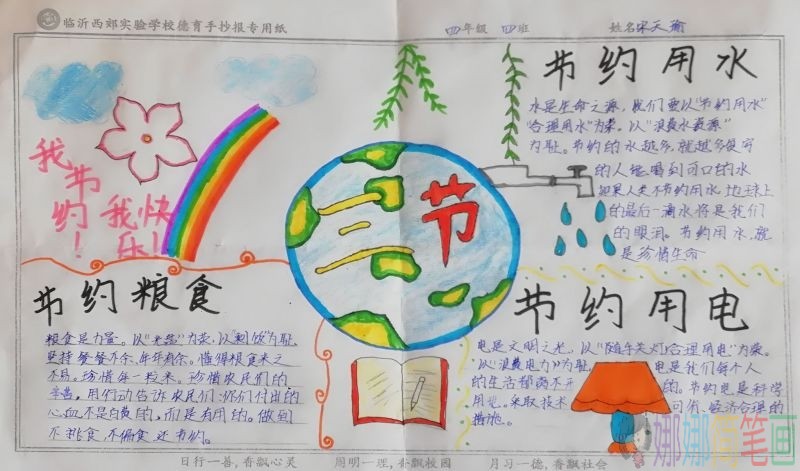 临沂西郊实验学校德育手抄报专用纸
四年级 四班
姓名 宋天瑜
我节约！
我快乐！
三节
节约用水
水是生命之源，我们要以“节约用水”
“合理用水”为荣。以“浪费水资源”
为耻。节约的水越多，就越多
的人能喝到可口的水
如果人类不节约用水，地球上
的最后一滴水将是我们
的眼泪。节约用水，就
是珍惜生命
节约粮食
粮食是力量。以 为荣，以“剩饭”为耻，
坚持餐餐不余、年年有余。懂得粮食来之
不易。珍惜每一粒米。珍惜农民们的
辛苦，用行动告诉农民们：你们付出的
心血不是白费的，而是有用的。做到
不挑食、不偏食、还节约。
节约用电
电是文明之光，以“随手关灯，合理用电”为荣。
以“浪费电力”为耻， 电是我们每个人
的生活都离不开 的。节约电是科学
用电。采取技术 可行、经济合理的
措施。
日行一善，香飘心灵 周明一理，香飘校园 月习一德，香飘社会
娜娜简笔画